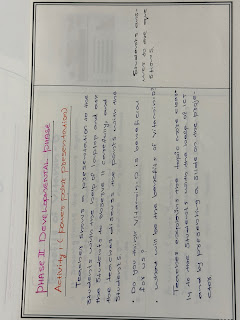 PHASE II DEVELOPMENTAL PHASE
Activity 1 (Power point presentation)
Teacher shows a presentation to the
students with the help of laptop and ask
the students to observe it carefully, and
the teacher discuss the points with the
students.
• Do you think Vitamin D is beneficial
for us?
• What will be the benefits of vitamins?
Teacher explains the topic more clear
ly to the students with the help of ICT
and by presenting a slide on the proje-
ctor.
Students ans-
wer to the que
stions.